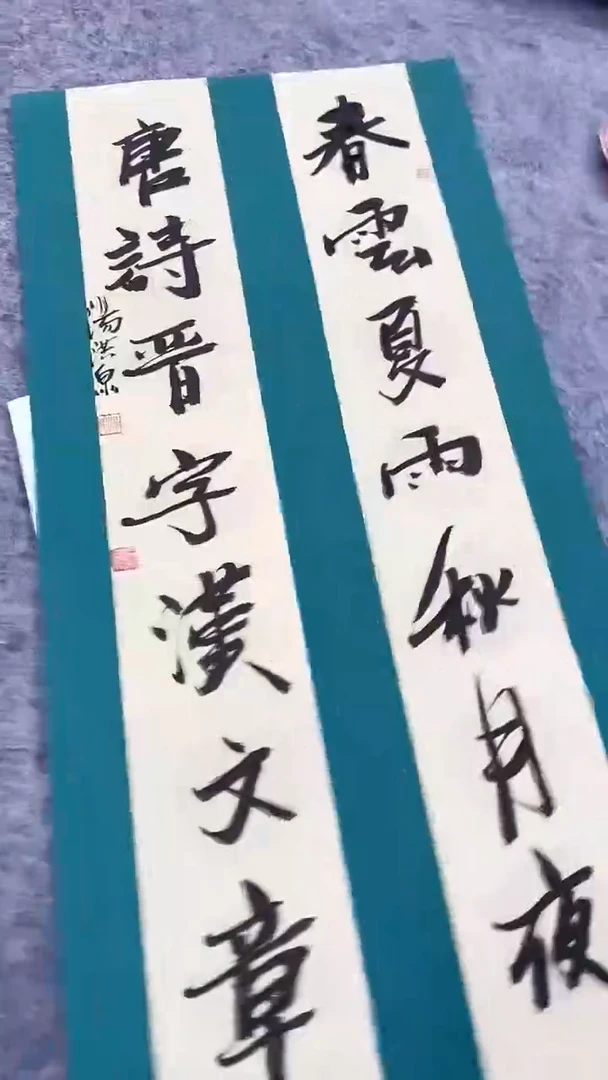 春雲夏雨秋月夜
唐詩晋字漢文章
洪泉